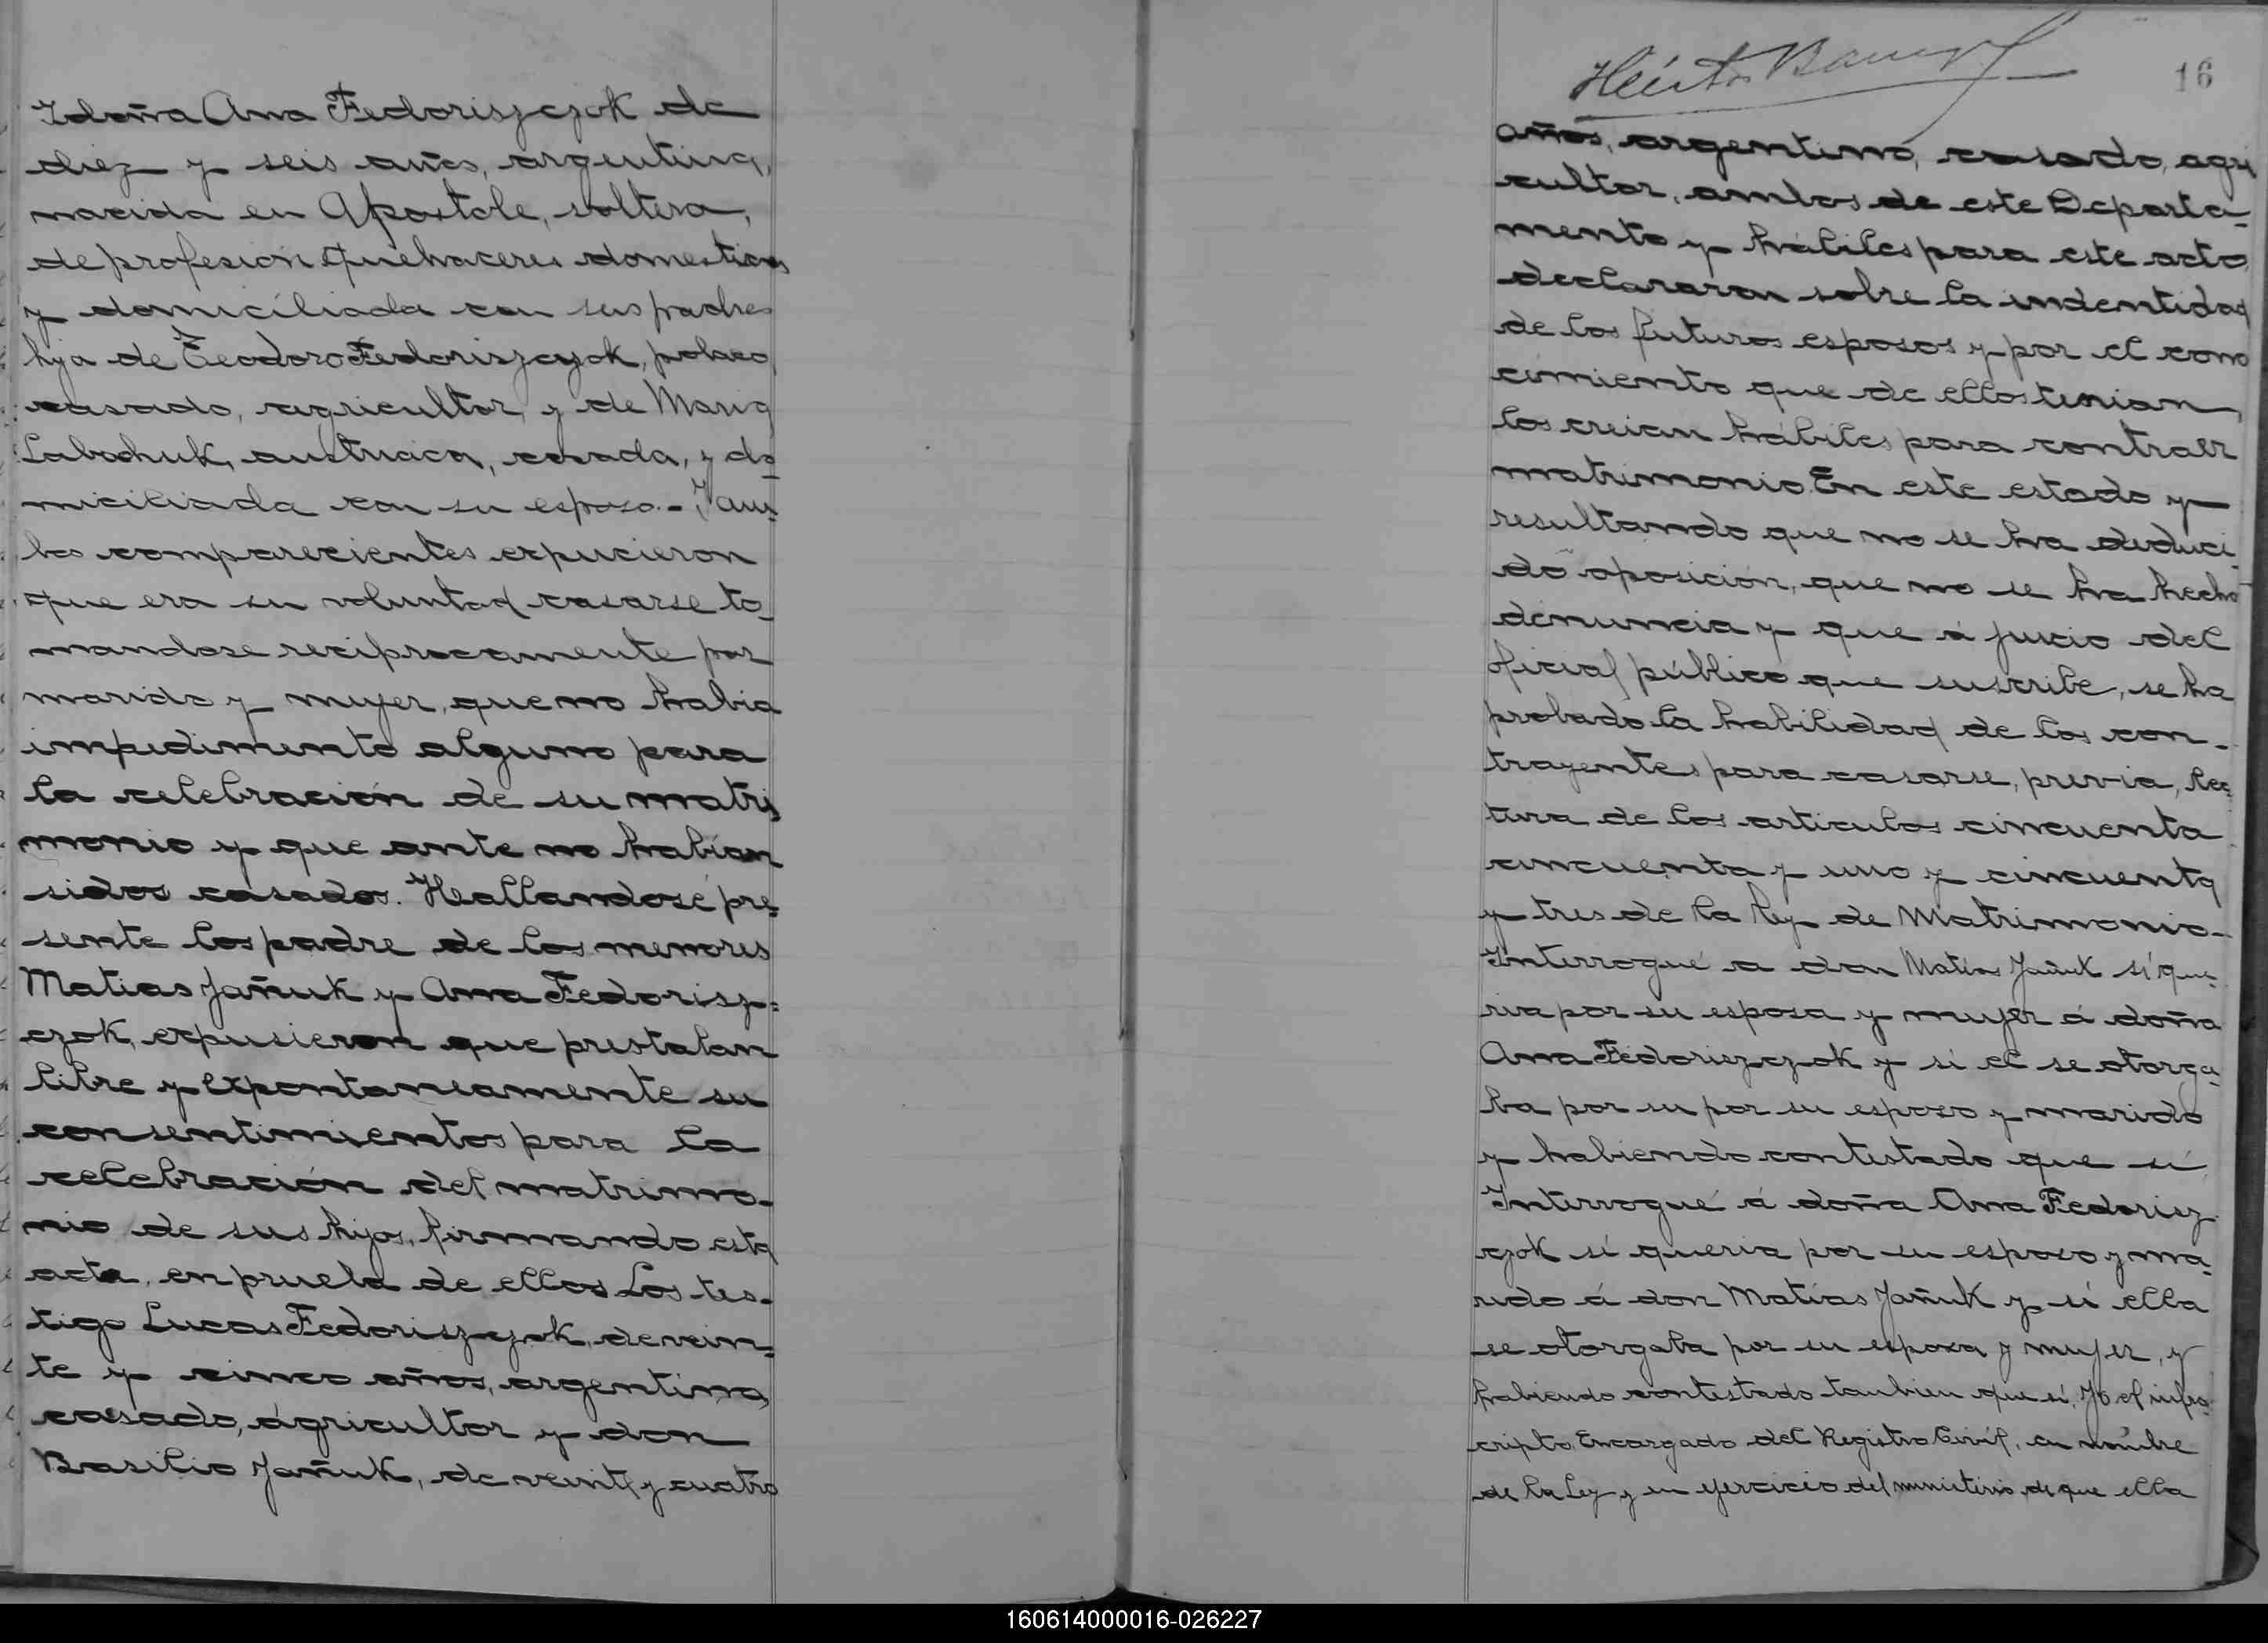 Y doña Ana Fedoriszczok de
diez y seis años, argentina,
nacida en Apostole, soltera,
de profesión Quehaceres domesticos
y domiciliada con sus padres
hija de Teodoro Fedoriszczok, polaco
casado, agricultor, y de Maria
Labachuk, austriaca, casada, y do_
miciliada con su esposo.- Y am_
bos comparecientes expucieron
que era su voluntad casarse to_
mandose reciprocamente por
marido y mujer, que no habia
impedimento alguno para
la celebración de su matri_
monio y que ante no habían
sidos casados. Hallandosé pre_
sente los padre de los menores
Matias Jañuk y Ana Fedorisz=
czok, expusieron que prestaban
libre y expontaneamente su
consentimientos para la
celebración del matrimo_
nio de sus hijos, firmando esta
acta, en prueba de ellos Los tes_
tigo Lucas Fedoriszczok, de vein_
te y cinco años, argentino,
casado, ágricultor y don
Basilio Jañuk, de veinte y cuatro
Héctor
16
años, argentino, casado, agri
cultor, ambos de este Departa_
mento y habiles para este acto
declararon sobre la indentidad
de los futuros esposos y por el cono
cimiento que de ellos tenian,
los creian hábiles para contraer
matrimonio En este estado y
resultando que no se ha deduci_
do oposición, que no se ha hecho
denuncia y que á juicio del
oficial público que suscribe, se ha
probado la habilidad de los con_
trayentes para casarse, previa, lec_
tura de los articulos cincuenta
cincuenta y uno y cincuenta
y tres de la ley de Matrimonio_
Interrogué a don Matias Jañuk sí que_
ria por su esposa y mujer á doña
Ana Fedoriszczok y si el se otorga_
ba por su por su esposo y marido
y habiendo contestado que sí
Interrogué á doña Ana Fedorisz
czok sí queria por su esposo y ma_
rido á don Matías Jañuk y sí ella
se otorgaba por su esposa y mujer, y
habiendo contestado tambien que sí, Yo el infra_
cripto Encargado del Registro Civil, en nombre
de la Ley y en ejercicio del ministerio de que ella
160614000016-026227